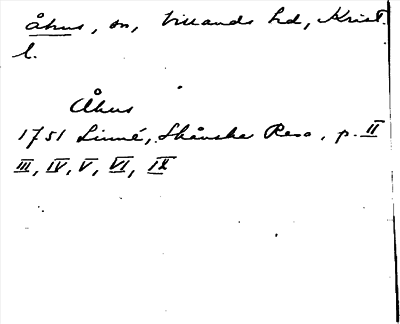 åhus, sn, Villands hd, Krist.
l.
Åhus
1751 Linné, Skånska Resa, p. II
III, IV, V, VI, IX